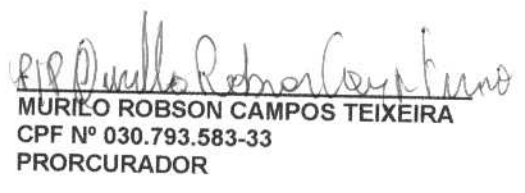 P/P Murillo Robson Campos
MURILO ROBSON CAMPOS TEIXEIRA
CPF Nº 030.793.583-33
PRORCURADOR